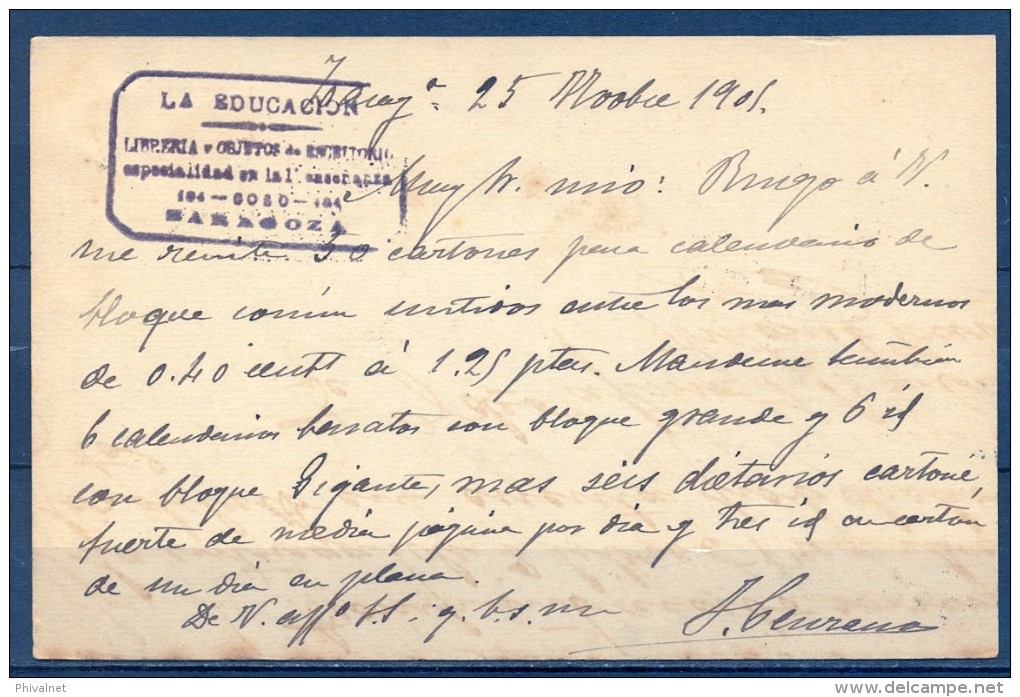 LA EDUCACION
LIBRERIA Y OBJETOS de ESCRITORIO
especialidad en la 1ª enseñanza
184 — COSO — 184
ZARAGOZA
Zaragª 25 Novbre 1901.
Muy Sr. mio: Ruego á V.
me remita 50 cartones para calendario de
bloque común surtidos entre los mas modernos
de 0.40 cents á 1.25 ptas. Mandeme también
6 calendarios baratos con bloque grande y 6 id
con bloque Gigante, mas seis dietarios cartoné,
fuerte de media página por dia y tres id en carton
de un dia en plana.
De V. affº S.S. q. b. s. m
Phivalnet
delcampe.net